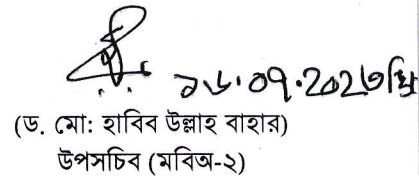 ১৬.০৭.২০২৩খ্রি
(ড. মো: হাবিব উল্লাহ বাহার)
উপসচিব (মবিঅ-২)